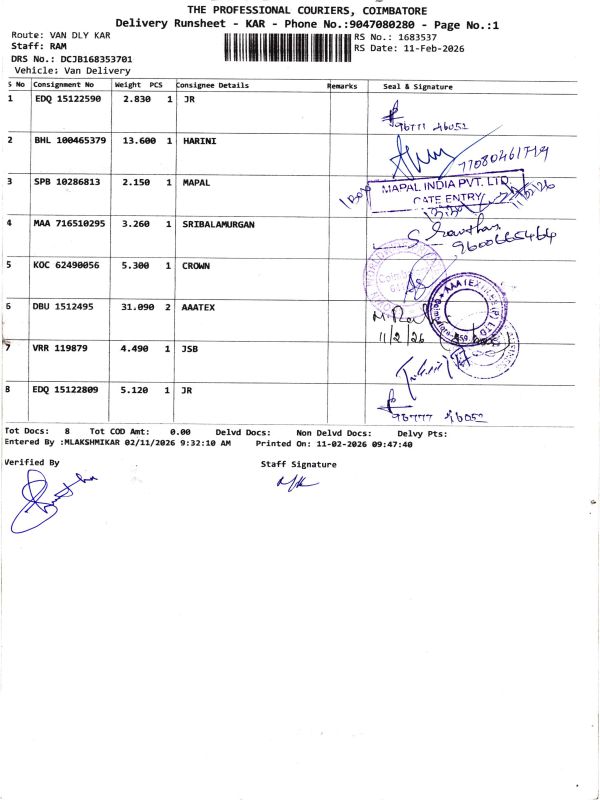 THE PROFESSIONAL COURIERS, COIMBATORE
Delivery Runsheet - KAR - Phone No.:9047080280 - Page No.:1
Route: VAN DLY KAR
RS No.: 1683537
Staff: RAM
RS Date: 11-Feb-2026
DRS No.: DCJB168353701
Vehicle: Van Delivery
S No Consignment No Weight PCS Consignee Details Remarks Seal & Signature
1 EDQ 15122590 2.830 1 JR
2 BHL 100465379 13.600 1 HARINI
77080461719
3 SPB 10286813 2.150 1 MAPAL
MAPAL INDIA PVT. LTD.
GATE ENTRY
4 MAA 716510295 3.260 1 SRIBALAMURGAN
9600665464
5 KOC 62490056 5.300 1 CROWN
6 DBU 1512495 31.090 2 AAATEX
11/2/26
7 VRR 119879 4.490 1 JSB
8 EDQ 15122809 5.120 1 JR
96777 46052
Tot Docs: 8 Tot COD Amt: 0.00 Delvd Docs: Non Delvd Docs: Delvy Pts:
Entered By :MLAKSHMIKAR 02/11/2026 9:32:10 AM Printed On: 11-02-2026 09:47:40
Verified By
Staff Signature